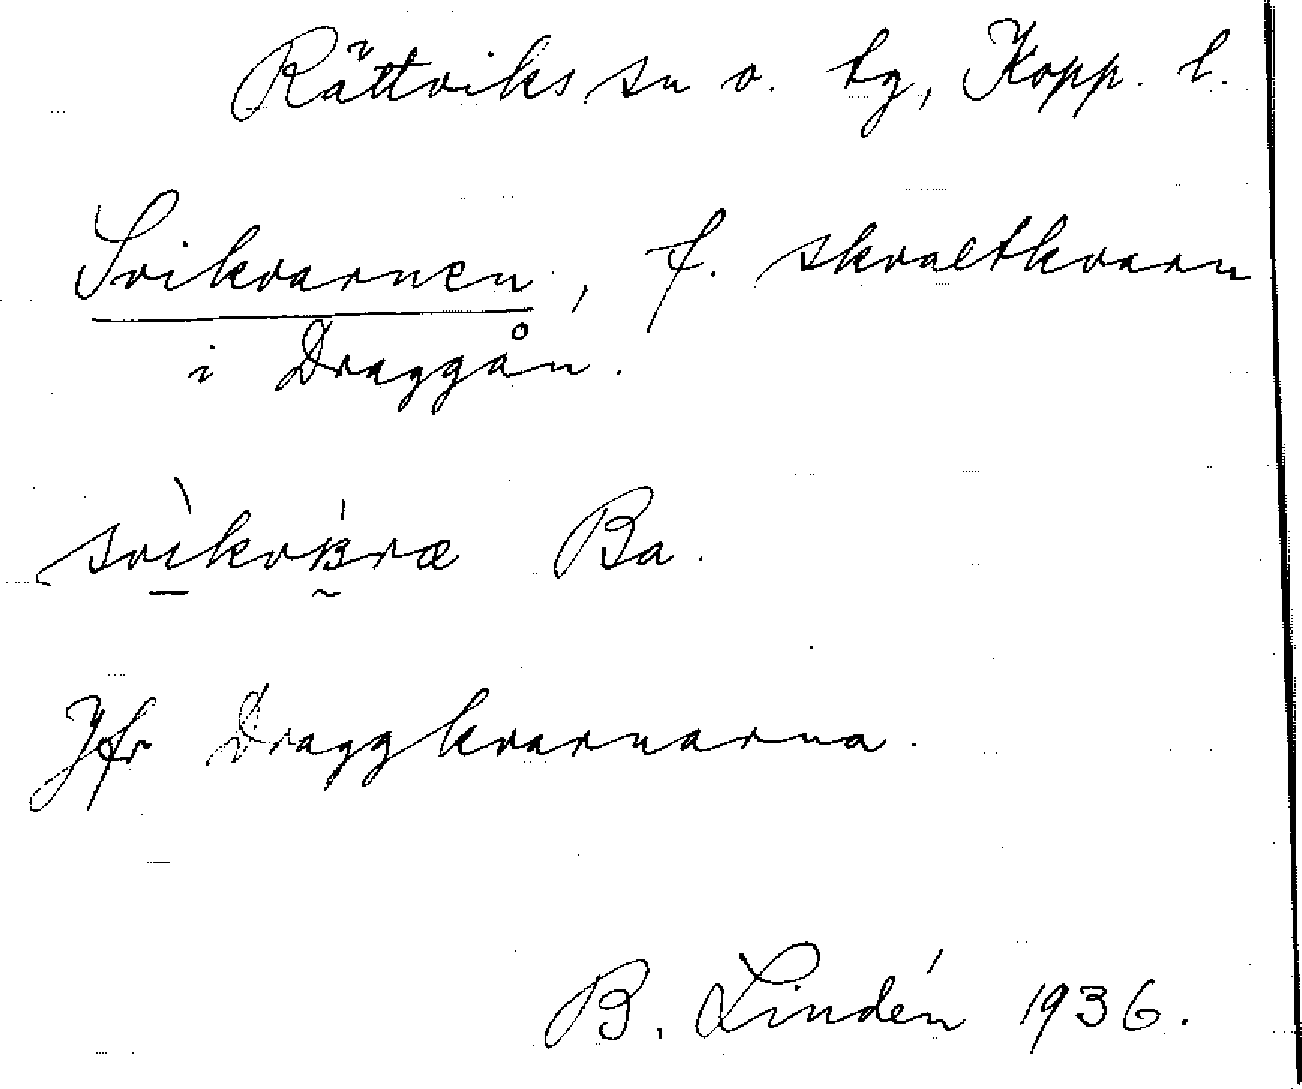 Rättviks sn o. tg, Kopp. l.
Svikvarnen, f. skvaltkvarn
i Draggån.
Ba.
Jfr Draggkvarnarna.
B. Lindén 1936.